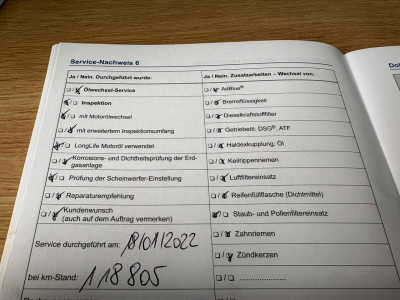 Service-Nachweis 6
Ja / Nein. Durchgeführt wurde:
Ölwechsel-Service
Inspektion
mit Motorölwechsel
mit erweitertem Inspektionsumfang
LongLife Motoröl verwendet
Korrosions- und Dichtheitsprüfung der Erd-
gasanlage
Prüfung der Scheinwerfer-Einstellung
Reparaturempfehlung
Kundenwunsch
(auch auf dem Auftrag vermerken)
Service durchgeführt am: 18/01/2022
bei km-Stand: 118805
Ja / Nein. Zusatzarbeiten – Wechsel von:
AdBlue®
Bremsflüssigkeit
Dieselkraftstofffilter
Getriebeöl: DSG®, ATF
Haldexkupplung: Öl
Keilrippenriemen
Luftfiltereinsatz
Reifenfüllflasche (Dichtmittel)
Staub- und Pollenfiltereinsatz
Zahnriemen
Zündkerzen